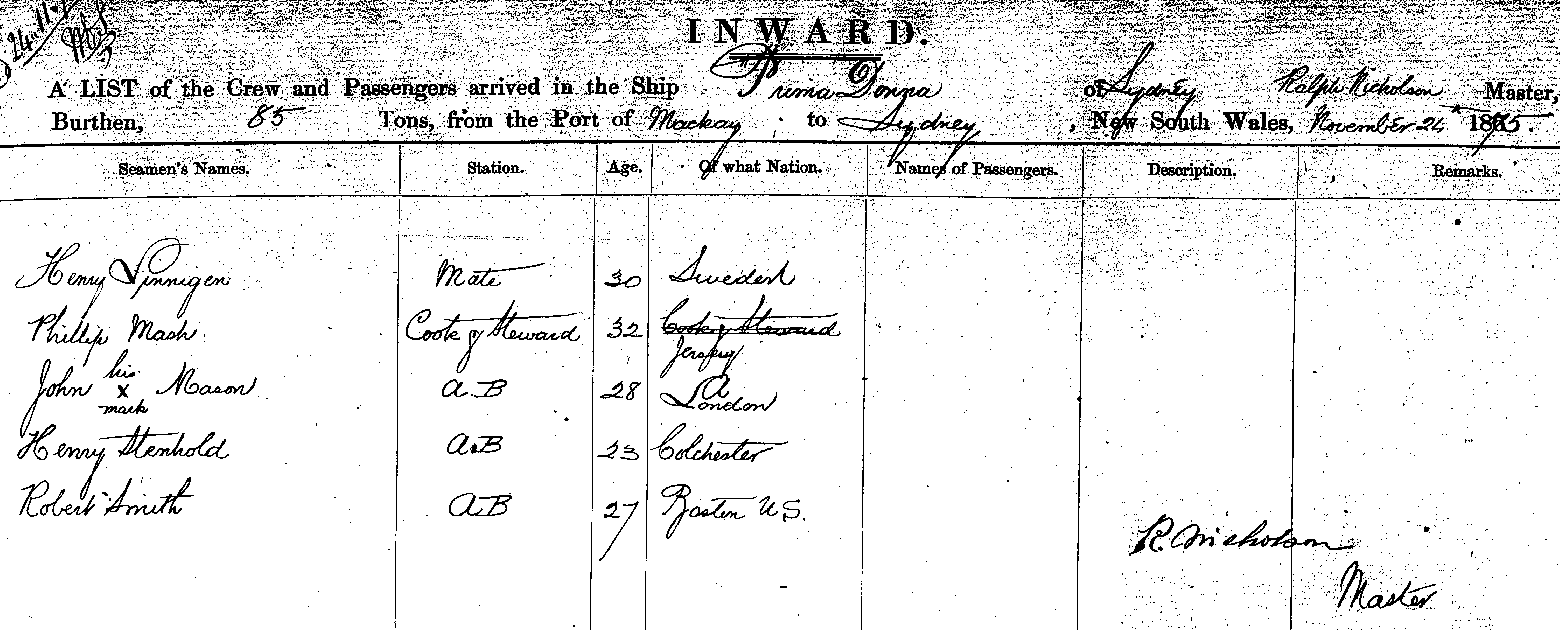 INWARD.
A LIST of the Crew and Passengers arrived in the Ship Prima Donna of Sydney Ralph Nicholson Master,
Burthen, 85 Tons, from the Port of Mackay to Sydney, New South Wales, November 24 1875.
Seamen's Names. Station. Age. Of what Nation. Names of Passengers. Description. Remarks.
Henry Mate 30 Swedish
Phillip Mash Cook & Steward 32 Cook & Steward
Jersey
John his x mark Mason AB 28 London
Henry Stenhold AB 23 Colchester
Robert Smith AB 27 Boston U.S.
R. Nicholson
Master